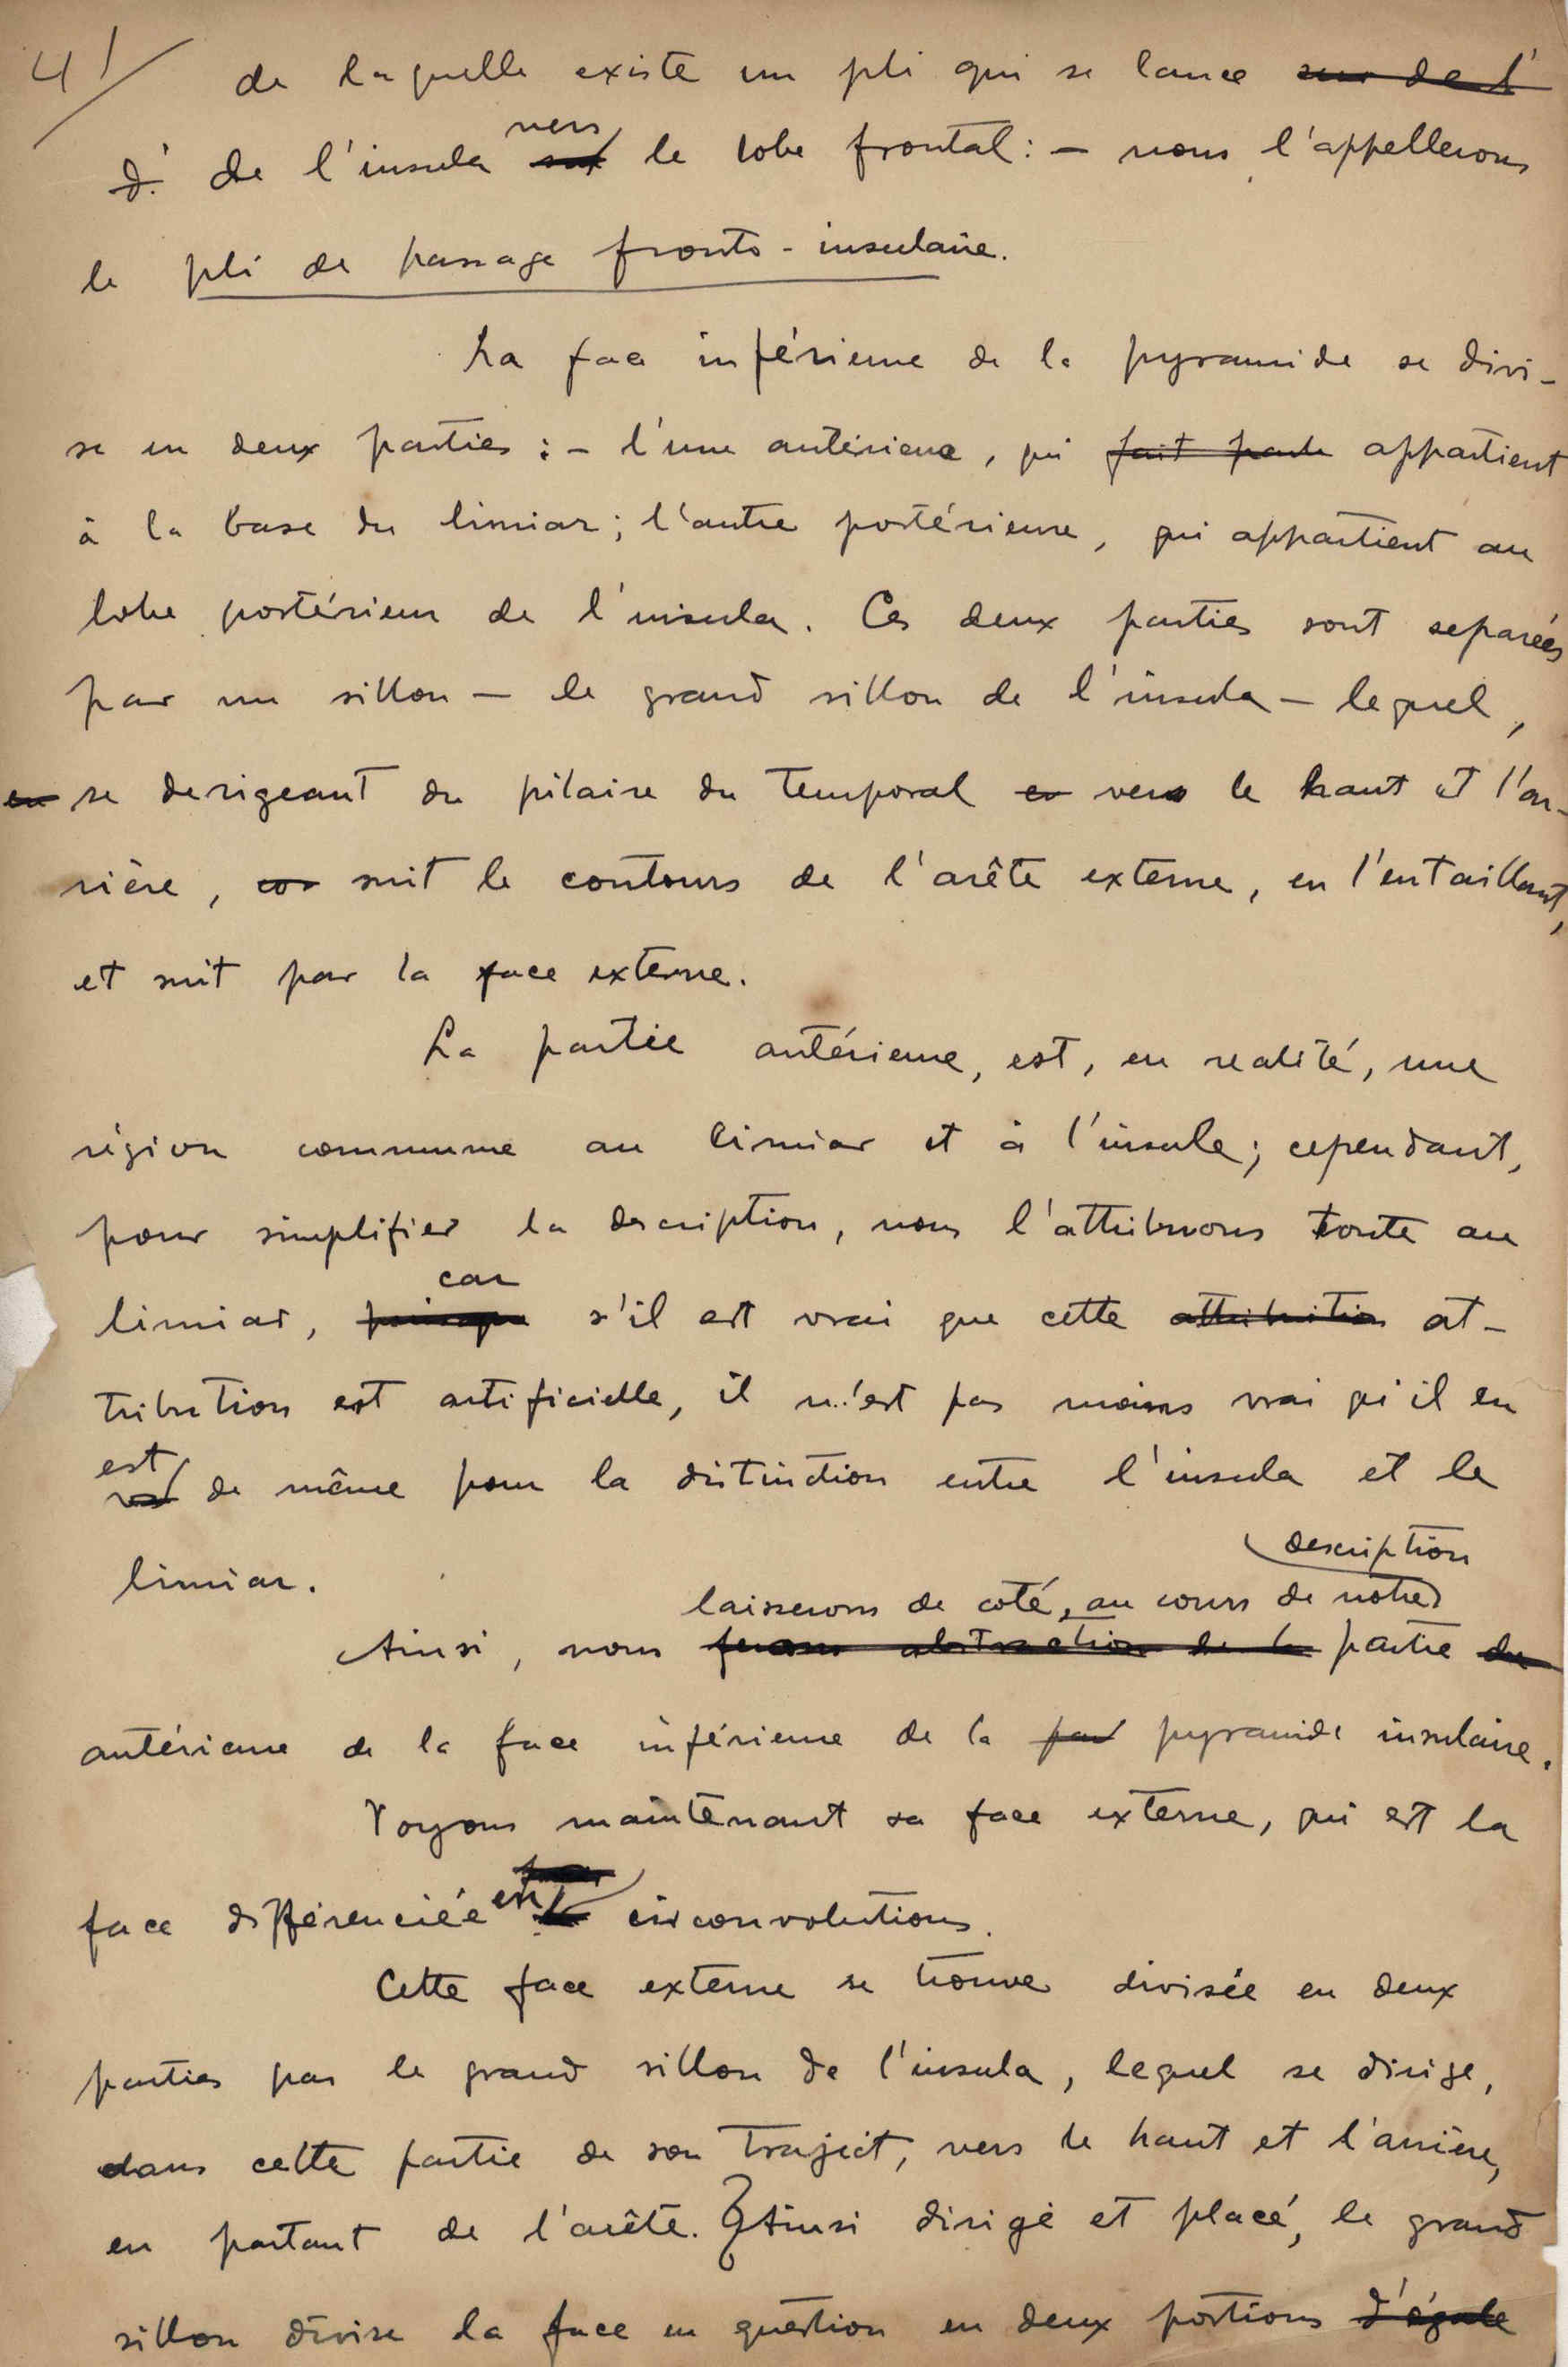 41/ de laquelle existe un pli qui se lance sur de l'
d' de l'insula vers le lobe frontal: — nous l'appellerons
le pli de passage fronto-insulaire.
La face inférieure de la pyramide se divi-
se en deux parties: — l'une antérieure, qui fait parte appartient
à la base du limiar; l'autre postérieure, qui appartient au
lobe postérieur de l'insula. Ces deux parties sont separées
par un sillon — le grand sillon de l'insula — lequel,
en se derigeant du pilaire du temporal en vers le haut et l'ar-
rière, suit le contours de l'arête externe, en l'entaillant,
et suit par la face externe.
La partie antérieure, est, en realité, une
région commune au limiar et à l'insule; cependant,
pour simplifier la description, nous l'attribuons toute au
car
limiar, puisque s'il est vrai que cette attribution at-
tribution est artificielle, il n'est pas moins vrai qu'il en
est
de même pour la distinction entre l'insula et le
description
limiar.
laisserons de coté, au cours de notre
Ainsi, nous ferons abstraction de la partie du
antérieure de la face inférieure de la par pyramide insulaire.
Voyons maintenant sa face externe, qui est la
face différenciée en circonvolutions.
Cette face externe se trouve divisée en deux
parties par le grand sillon de l'insula, lequel se dirige,
dans cette partie de son traject, vers le haut et l'arrière,
en partant de l'arête. Ainsi dirigé et placé, le grand
sillon divise la face en question en deux portions d'égale